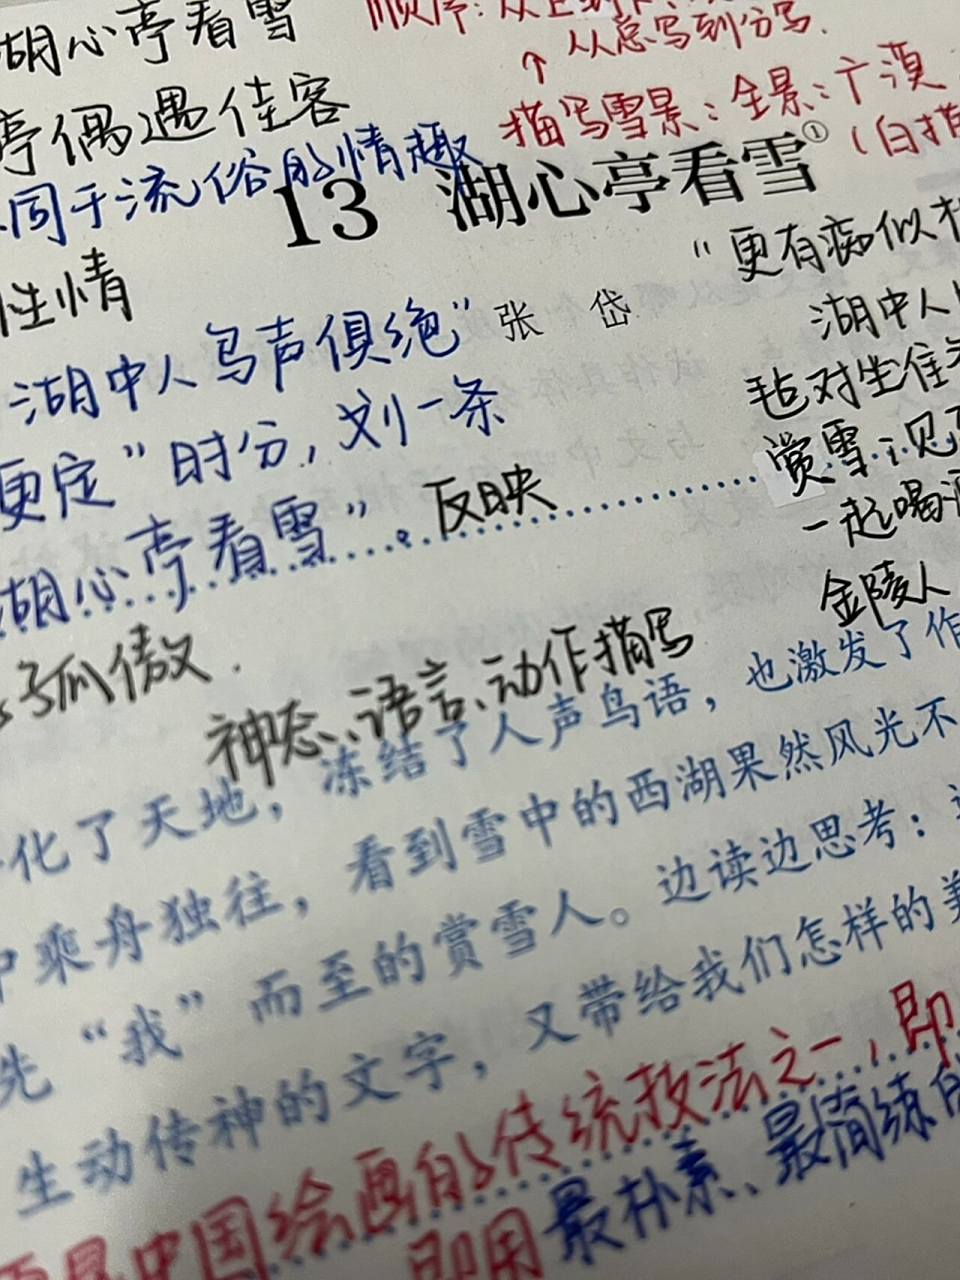 湖心亭看雪
顺序:从上到下
从总写到分写.
亭偶遇佳客
描写雪景:全景:广漠
(白描
同于流俗的情趣
13 湖心亭看雪①
性情
"更有痴似
张 岱
湖中人鸟声俱绝"
湖中人
毡对坐
更定"时分,刘一条
赏雪;见
湖心亭看雪"。反映
一起喝酒
金陵人
孤傲.
神态、语言、动作描写
化了天地,冻结了人声鸟语,也激发了作
中乘舟独往,看到雪中的西湖果然风光不
先"我"而至的赏雪人。边读边思考:
生动传神的文字,又带给我们怎样的美
中国绘画的传统技法之一,即
即用最朴素、最简练的